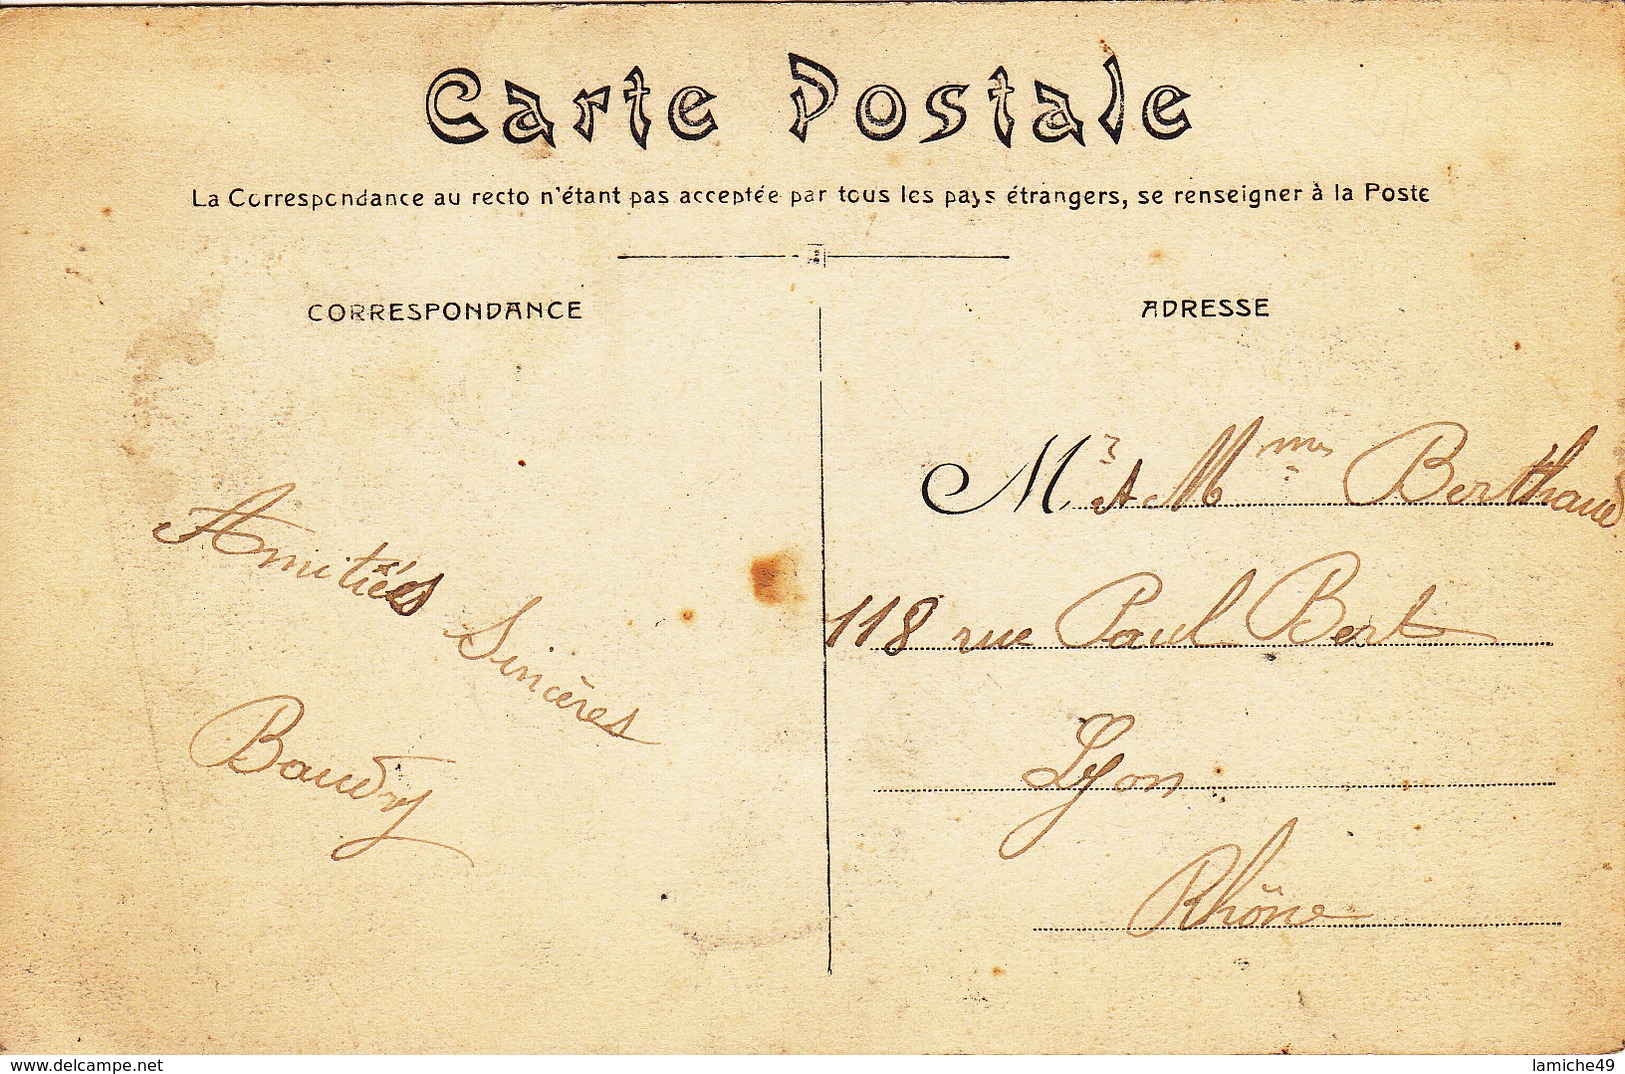 Carte Postale
La Correspondance au recto n'étant pas acceptée par tous les pays étrangers, se renseigner à la Poste
CORRESPONDANCE
Amitiés
Sincères
Baudry
ADRESSE
Mr et Mme Berthaud
118 rue Paul Bert
Lyon
Rhône
https://www.delcampe.net
lamiche49